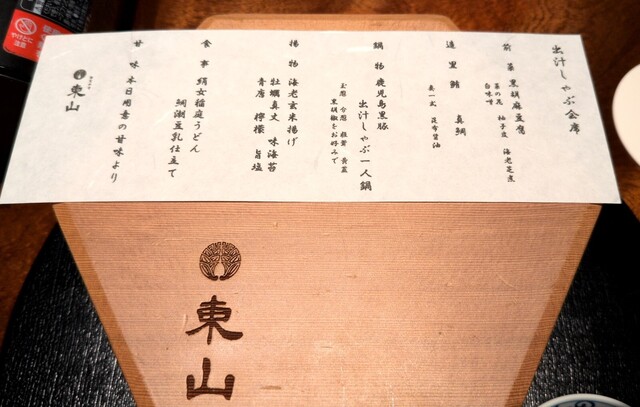 出汁しゃぶ会席
前菜 黒胡麻豆腐
菜の花 柚子皮 海老芝煮
白味噌
造里 鮪 真鯛
あしらい 昆布醤油
鍋物 鹿児島黒豚
出汁しゃぶ一人鍋
玉葱 白葱 椎茸 青菜
黒胡椒をお好みで
揚物 海老玄米揚げ
牡蠣真丈 味海苔
青唐 檸檬 旨塩
食事 絹女稲庭うどん
鯛潮豆乳仕立て
甘味 本日用意の甘味より
東山
東山
やけどに
注意